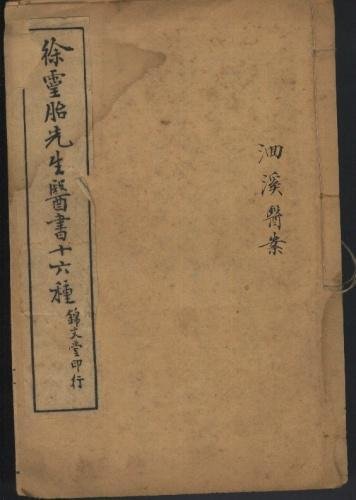 洄溪醫案
徐靈胎先生醫書十六種
錦文堂印行